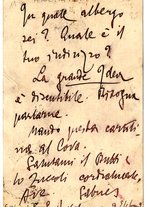 In quale albergo
sei? Quale è il
tuo indirizzo?
La grande Idea
è discutibile. Bisogna
parlarne.
Mando questa cartoli
na al Cova.
Salutami il Butti e
lo Zuccoli cordialmente.
Ave